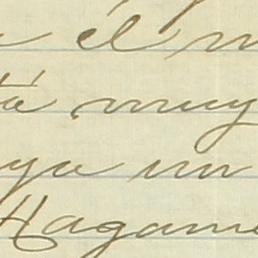 él
tá muy
ya un
Hagam